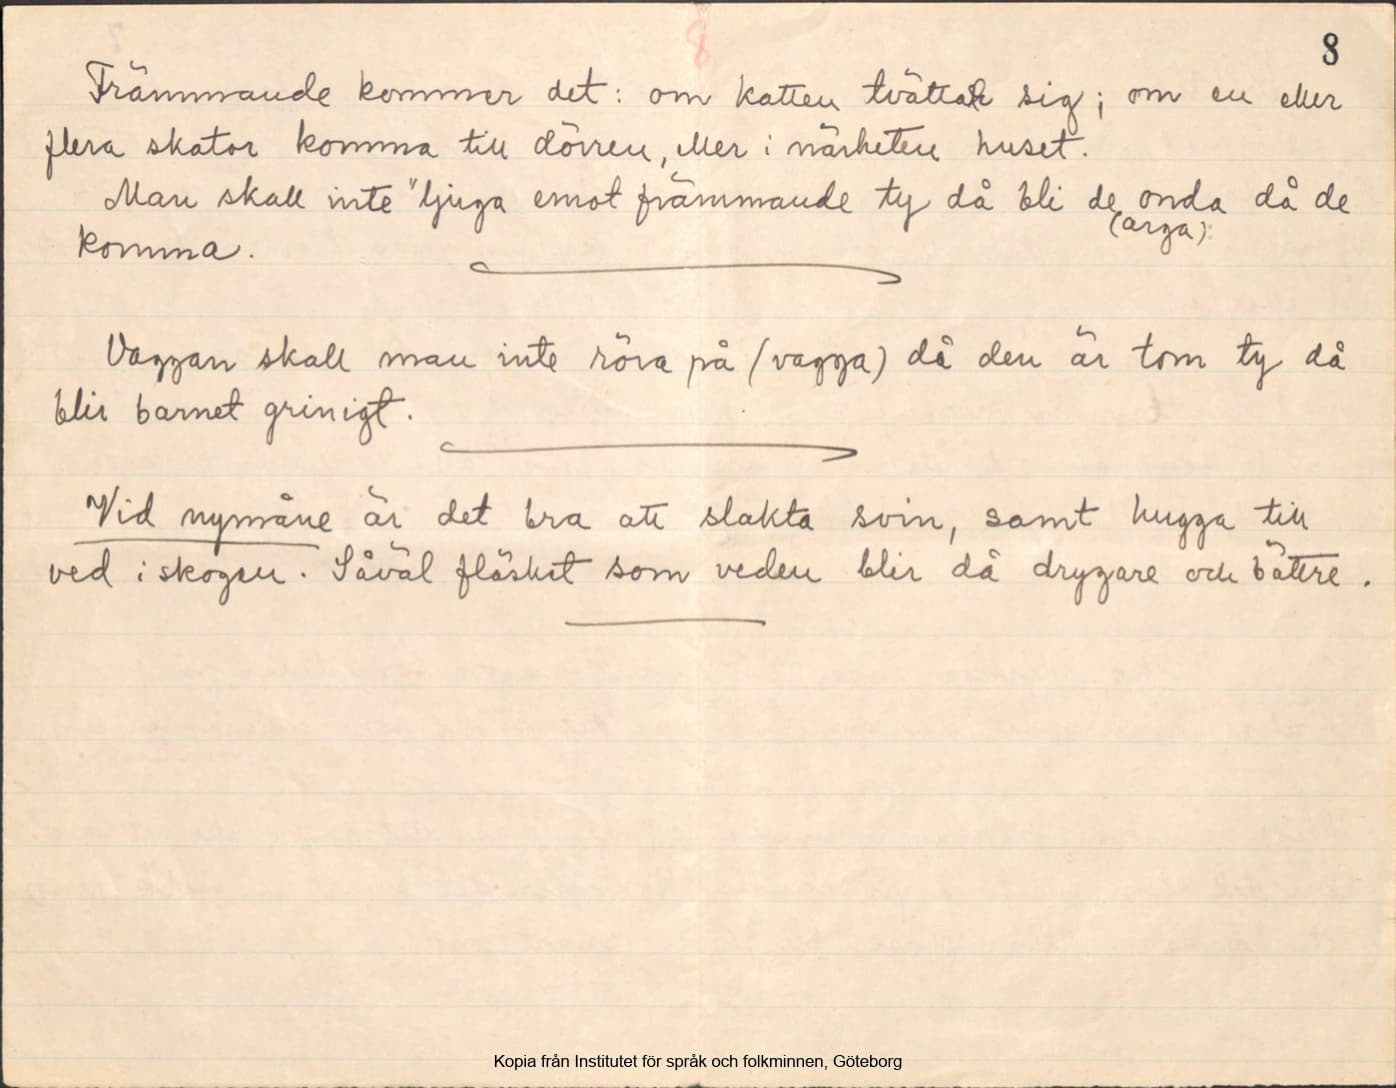 8
8
Främmande kommer det: om katten tvättar sig; om en eller
flera skator komma till dörren, eller i närheten huset.
Man skall inte "ljuga emot främmande ty då bli de onda då de
(arga)
komma.
Vaggan skall man inte röra på (vagga) då den är tom ty då
blir barnet grinigt.
Vid nymåne är det bra att slakta svin, samt hugga till
ved i skogen. Såväl fläsket som veden blir då drygare och bättre.
Kopia från Institutet för språk och folkminnen, Göteborg